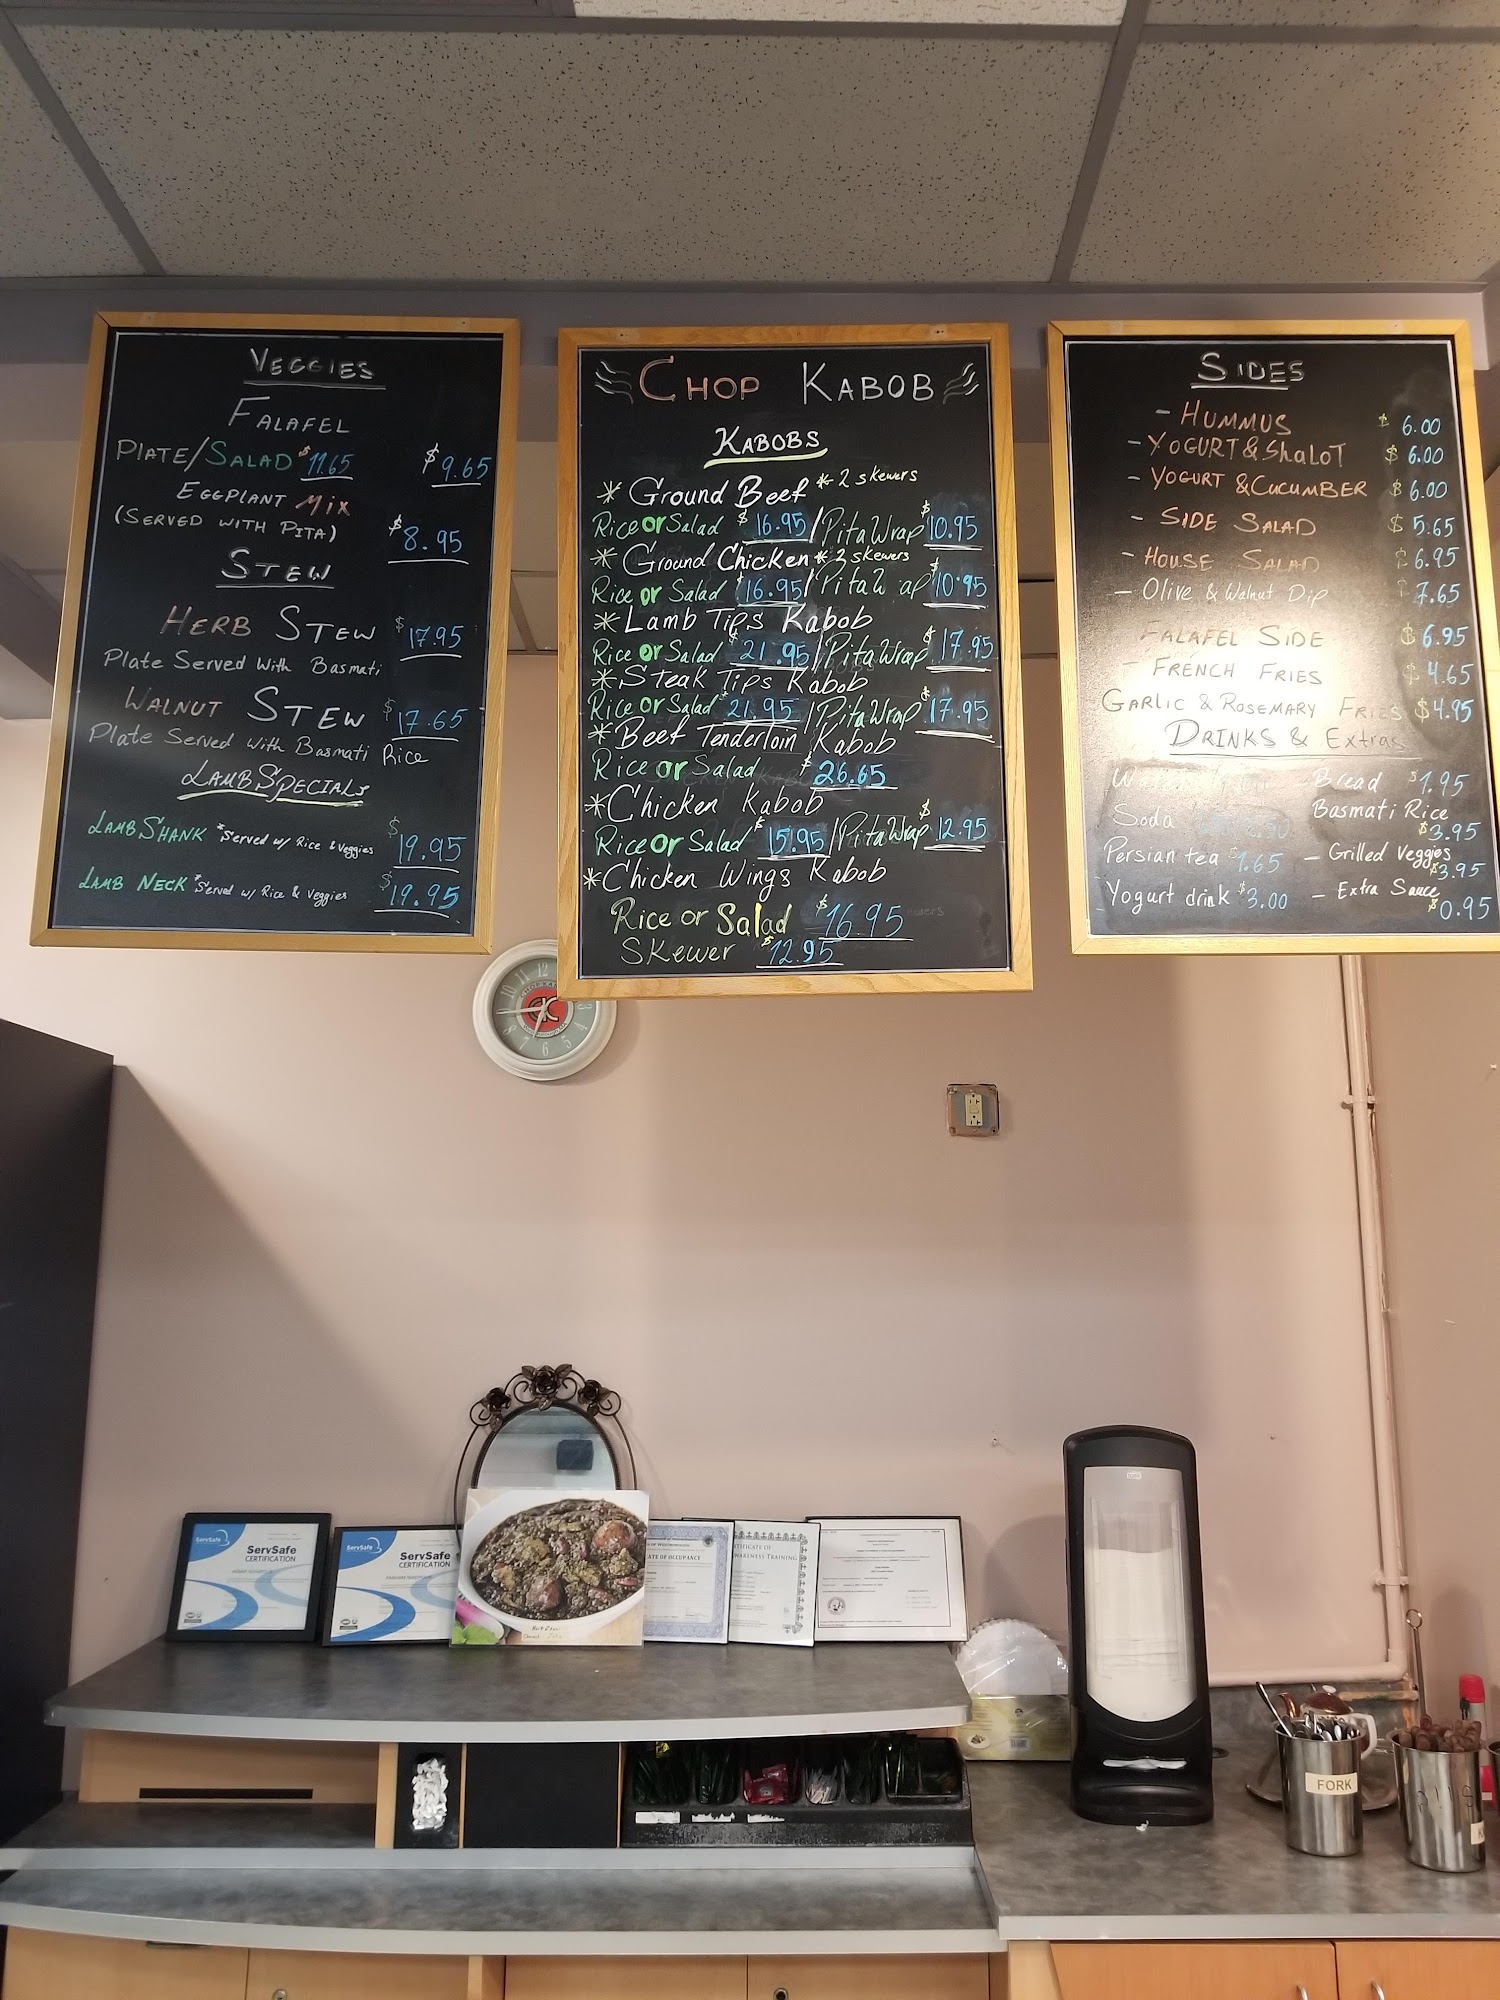 VEGGIES
FALAFEL
PLATE/SALAD $11.65 $9.65
EGGPLANT MIX
(SERVED WITH PITA) $8.95
STEW
HERB STEW $17.95
Plate Served With Basmati
WALNUT STEW $17.65
Plate Served With Basmati Rice
LAMB SPECIALS
LAMB SHANK *Served w/ Rice & Veggies $19.95
LAMB NECK *Served w/ Rice & Veggies $19.95
CHOP KABOB
KABOBS
* Ground Beef * 2 skewers
Rice or Salad $16.95 / Pita Wrap $10.95
* Ground Chicken * 2 skewers
Rice or Salad $16.95 / Pita W ap $10.95
* Lamb Tips Kabob
Rice or Salad $21.95 / Pita Wrap $17.95
* Steak Tips Kabob
Rice or Salad $21.95 / Pita Wrap $17.95
* Beef Tenderloin Kabob
Rice or Salad $26.65
* Chicken Kabob
Rice or Salad $15.95 / Pita Wrap $12.95
* Chicken Wings Kabob
Rice or Salad $16.95
SKewer $12.95
SIDES
- HUMMUS $6.00
- YOGURT & ShaLOT $6.00
- YOGURT & CUCUMBER $6.00
- SIDE SALAD $5.65
- HOUSE SALAD $6.95
- Olive & Walnut Dip $7.65
FALAFEL SIDE $6.95
- FRENCH FRIES $4.65
GARLIC & ROSEMARY FRIES $4.95
DRINKS & Extras
- Bread $1.95
Soda
Basmati Rice $3.95
Persian tea $1.65
- Grilled Veggies $3.95
Yogurt drink $3.00
- Extra Sauce $0.95
12
11
10
8
7
6
5
ServSafe
ServSafe
CERTIFICATION
ServSafe
ServSafe
CERTIFICATION
ATE OF OCCUPANCY
TIFICATE OF
AWARENESS TRAINING
FORK